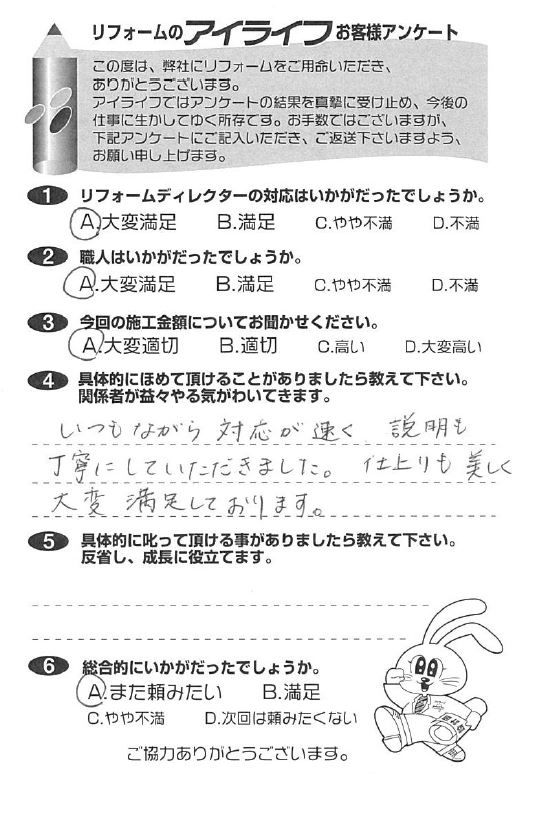 リフォームのアイライフお客様アンケート
この度は、弊社にリフォームをご用命いただき、
ありがとうございます。
アイライフではアンケートの結果を真摯に受け止め、今後の
仕事に生かしてゆく所存です。お手数ではございますが、
下記アンケートにご記入いただき、ご返送下さいますよう、
お願い申し上げます。
1 リフォームディレクターの対応はいかがだったでしょうか。
A.大変満足 B.満足 C.やや不満 D.不満
2 職人はいかがだったでしょうか。
A.大変満足 B.満足 C.やや不満 D.不満
3 今回の施工金額についてお聞かせください。
A.大変適切 B.適切 C.高い D.大変高い
4 具体的にほめて頂けることがありましたら教えて下さい。
関係者が益々やる気がわいてきます。
いつもながら 対応が速く 説明も
丁寧にしていただきました。 仕上りも美しく
大変 満足しております。
5 具体的に叱って頂ける事がありましたら教えて下さい。
反省し、成長に役立てます。
6 総合的にいかがだったでしょうか。
A.また頼みたい B.満足
C.やや不満 D.次回は頼みたくない
ご協力ありがとうございます。